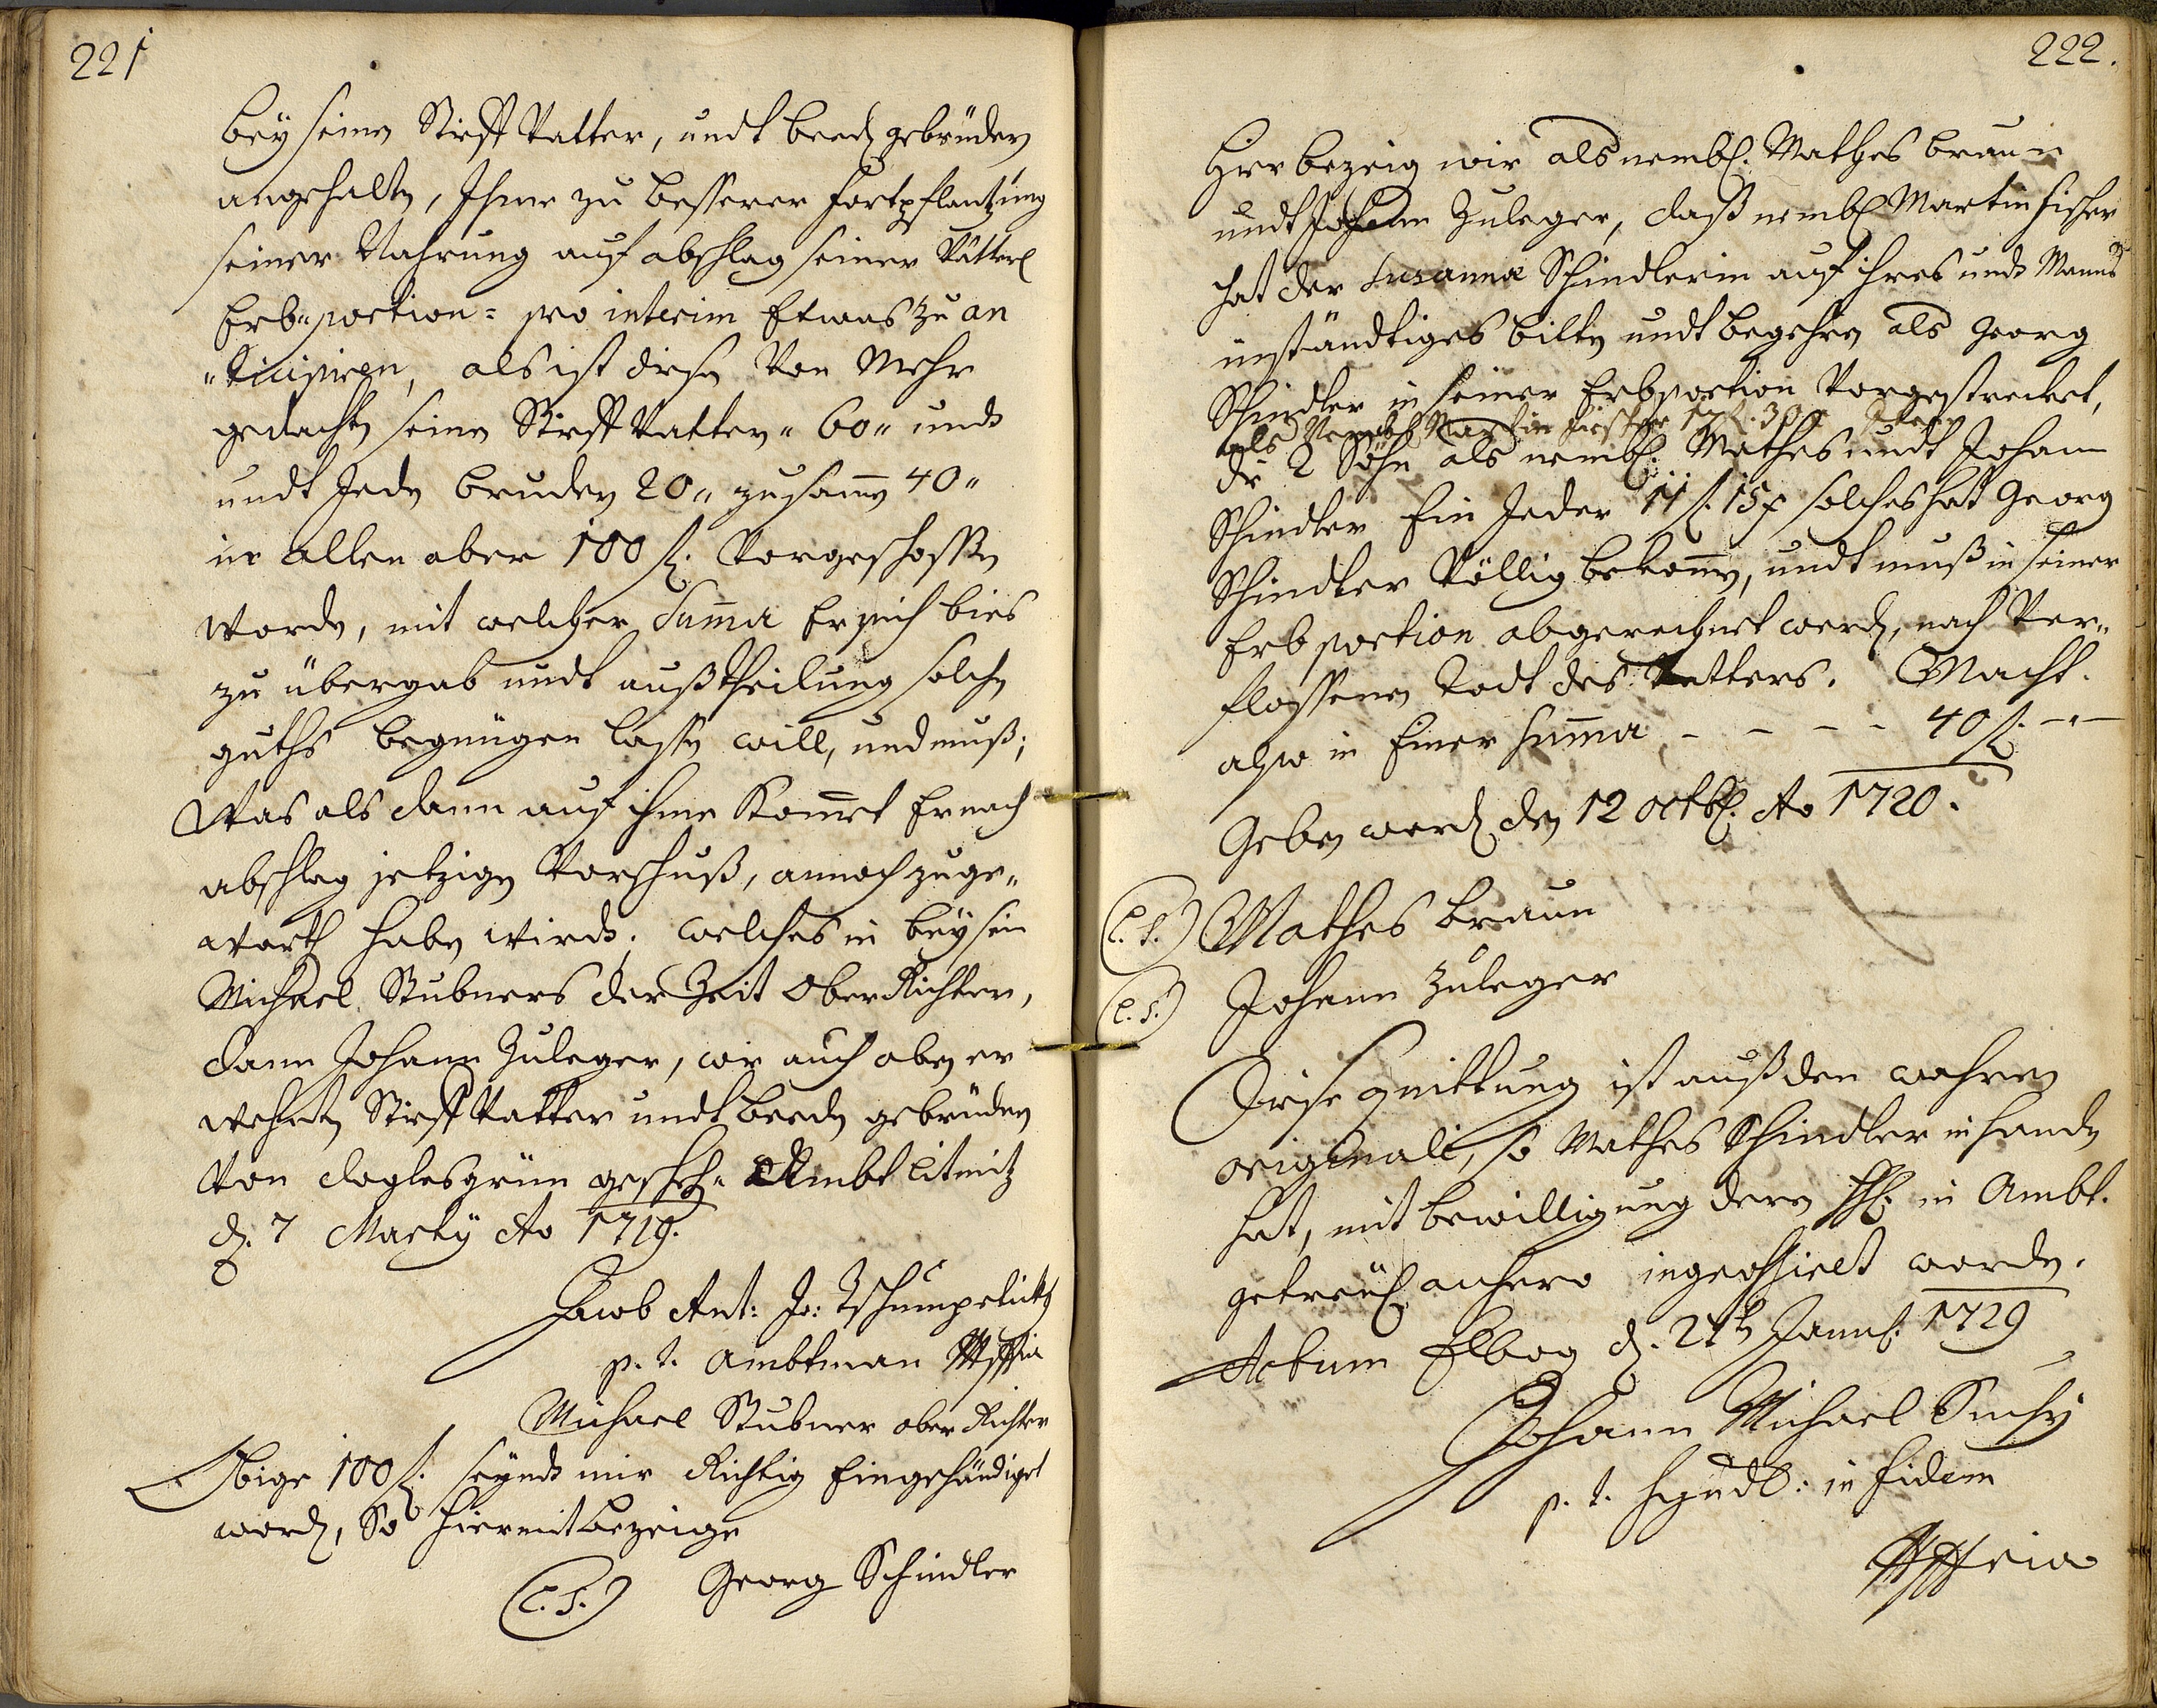 221
bey seinen Stieff Vatter, undt beed gebrüdern
angehalten, Ihme zu besserer fortpflantzung
seiner Nahrung auf abschlag seiner Vätterl
Erb=portion= pro interim Etwas zu an
"ticipiren, als ist diesen Von Mehr
gedachten seinen Stieff Vattern " 60 " undt
undt Jeden bruder 20 " zusamen 40 "
in allen aber 100 fl. Vorgeschossen
worden, mit welcher Suma Er sich bies
zu übergab undt außtheilung solchen
guths begnügen lassen will, und muß;
Was als dann auf ihme Komet Er nach
abschlag jetzigen Vorschuß, annoch zuge=
warth haben wirdt. welches in beysein
Michael Stubners der Zeit Ober Richtern,
dann Johann Zuleger, wie auch oben er
wehnten Stieff Vatter undt beeden gebrüdern
Von Doglesgrün gescheh= Ambt Litmitz
d. 7 Marty Ao 1719.
Jacob Ant: Jo: Tschumpelickh
p. t. Ambtman Mppia
Michael Stubner ober Richter
Obige 100 fl. seyndt mir Richtig Eingehändiget
word, So hiermit bezeige
(L. S.) Georg Schindler
222.
Hier bezeig wir als nembl. Mathes braun
undt Johann Zuleger, daß nembl Martin Fischer
hat der Susanna Schindlerin auf ihres undt Manns
inständtiges bitten undt begehren als Georg
Schindler in seiner Erbportion Vorgestrecket,
als Nembl Martin Fischer 17 fl. 30 x
die 2 Söhn als nembl. Mathes undt Johann
Schindler Ein Jeder 11 fl. 15 x solches hat Georg
Schindler Völlig bekomen, undt muß in seiner
Erb portion abgerechnet werd, nach Ver=
flossenen Todt des Vatters. Macht.
also in Einer Suma - - - - 40 fl. -"-
Geben word den 12 octbl. Ao 1720.
(L. S.) Mathes braun
(L. S.) Johann Zuleger
Diese quittung ist auß den wahren
originali, so Mathes Schindler in handen
hat, mit bewilligung deren HH. in Ambt.
getreül anhero ingrossiret worden.
Actum Elbog d. 21t Janul. 1729
Johann Michael Suchy
p. t. Syndl: in fidem
Mppria